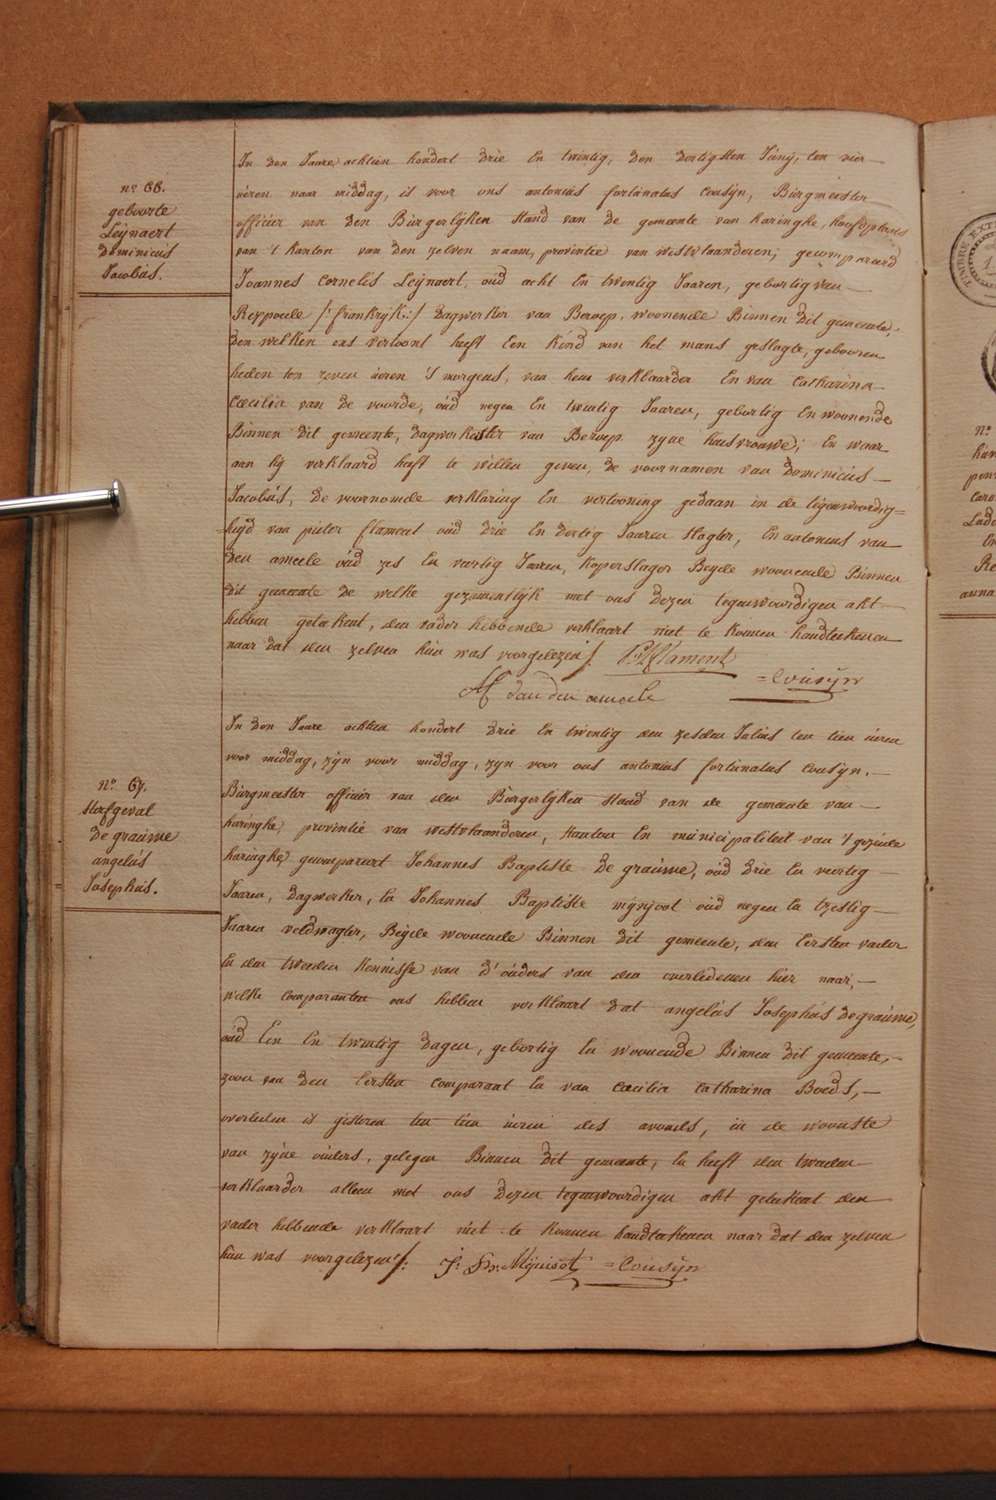 n.o 66.
geboorte
Leijnaert
Dominicus
Jacobus.
In den Jaare achtien hondert drie En twintig, den dertigsten Junij, ten vier
uren naar middag, is voor ons antonius fortunatus cousijn, Burgmeester
officier van den Burgerlyken stand van de gemeente van haringhe, hoofdplaets
van 't kanton van den zelven naam, provintie van westvlaanderen; gecompareerd
Joannes Cornelis Leijnaert, oud acht En twentig Jaaren, gebortig van
Rexpoede /:frankrijk:/ dagwerker van Beroep, woonende Binnen dit gemeente,
den welken ons vertoont heeft Een Kind van het mans geslagte, gebooren
heden ten zeven uren 's morgens, van hem verklaarder En van Catharina
Cæcilia van de voorde, oud negen En twintig Jaaren, gebortig En woonende
Binnen dit gemeente, dagwerkster van Beroep zyne huisvrouwe; En waar
aan hij verklaard heeft te willen geven, de voornamen van dominicus
Jacobus, De voornomde verklaring En vertooning gedaan in de tegenwoordig=
heyd van pieter flament oud drie En dertig Jaaren slagter, En antonius van
den ameele oud zes En veertig Jaaren, Koperslager Beyde woonende Binnen
dit gemeente de welke gezamentlijk met ons dezen tegenwoordigen akt
hebben geteekent, den vader hebbende verklaart niet te konnen handteekenen
naar dat den zelven hun was voorgelezen /. P: Flament
=Cousijn
AF van den ameele
n.o 67.
sterfgeval
De graüwe
angelus
Josephus.
In den Jaare achtien hondert drie En twintig den zesden Julius ten tien uren
voor middag, zijn voor middag, zyn voor ons antonius fortunatus cousijn.
Burgmeester officier van den Burgerlyken stand van de gemeente van
haringhe, provintie van westvlaanderen, Kanton En municipaliteit van 't gezeide
haringhe, gecompareert Johannes Baptiste De graüwe, oud drie En veertig
Jaaren, dagwerker, En Johannes Baptiste mynjoot oud negen En tzestig
Jaaren veldwagter, Beijde woonende Binnen dit gemeente, den Eersten vader
En den tweeden Kennisse van d'ouders van den overledenen hier naar,
welke comparanten ons hebben verklaart dat angelus Josephus Degraüwe,
oud Een En twintig dagen, gebortig En woonende Binnen dit gemeente,
zoon van den Eersten comparant En van Cæcilia Catharina Boeds,
overleden is gisteren ten tien uren des avonds, in de woonste
van zyne ouders, gelegen Binnen dit gemeente, En heeft den tweeden
verklaarder alleen met ons dezen tegenwoordigen akt geteekent den
vader hebbende verklaart niet te konnen handteekenen naar dat den zelven
hun was voorgelezen /: J: Bt. Mijnioot =Cousijn
TIMBRE EX